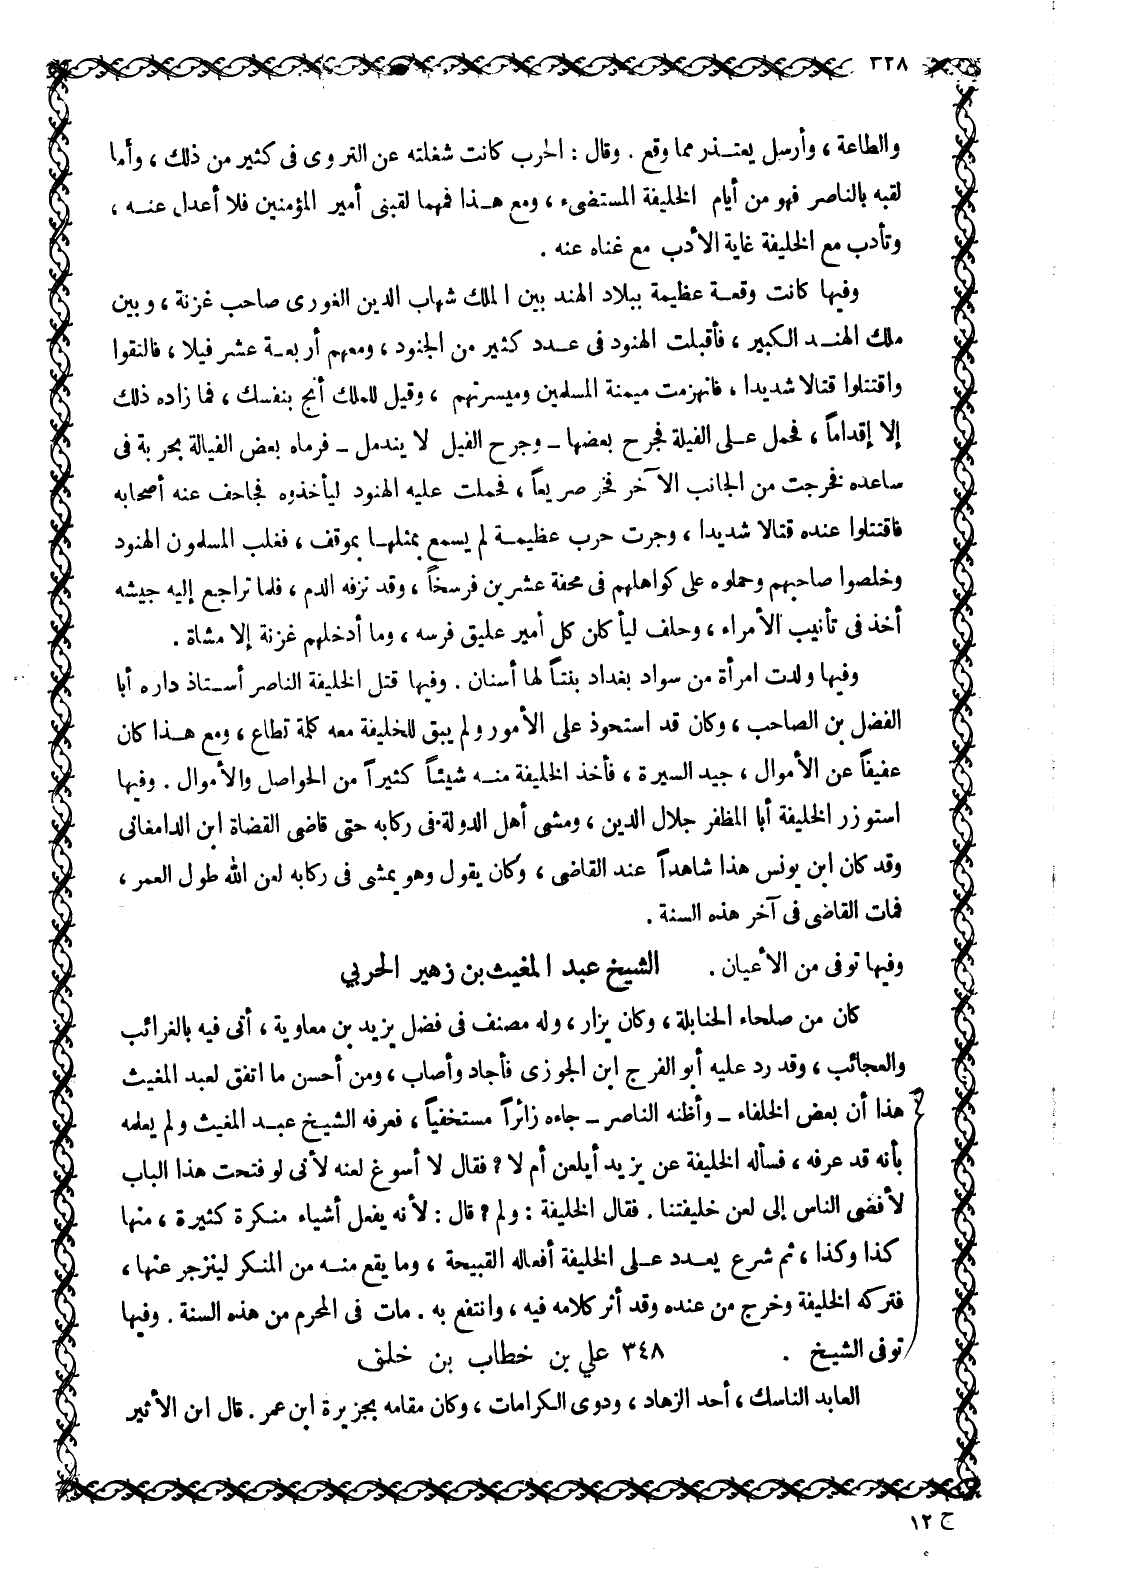 ٣٢٨
والطاعة ، وأرسل يعتـذر مما وقع . وقال : الحرب كانت شغلته عن التروى فى كثير من ذلك ، وأما
لقبه بالناصر فهو من أيام الخليفة المستضىء ، ومع هـذا فمهما لقبنى أمير المؤمنين فلا أعدل عنـه ،
وتأدب مع الخليفة غاية الأدب مع غناه عنه .
وفيها كانت وقعـة عظيمة ببلاد الهند بين الملك شهاب الدين الغورى صاحب غزنة ، وبين
ملك الهنـد الكبير ، فأقبلت الهنود فى عـدد كثير من الجنود ، ومعهم أربعـة عشر فيلا ، فالتقوا
واقتتلوا قتالا شديدا ، فانهزمت ميمنة المسلمين وميسرتهم ، وقيل للملك أنج بنفسك ، فما زاده ذلك
إلا إقداماً ، فحمل عـلى الفيلة فجرح بعضها ـ وجرح الفيل لا يندمل ـ فرماه بعض الفيالة بحربة فى
ساعده فخرجت من الجانب الآخر فخر صريعاً ، فحملت عليه الهنود ليأخذوه فجاحف عنه أصحابه
فاقتتلوا عنده قتالا شديدا ، وجرت حرب عظيمـة لم يسمع بمثلهـا بموقف ، فغلب المسلمون الهنود
وخلصوا صاحبهم وحملوه على كواهلهم فى محفة عشرين فرسخاً ، وقد نزفه الدم ، فلما تراجع إليه جيشه
أخذ فى تأنيب الأمراء ، وحلف ليأكلن كل أمير عليق فرسه ، وما أدخلهم غزنة إلا مشاة .
وفيها ولدت امرأة من سواد بغداد بنتاً لها أسنان . وفيها قتل الخليفة الناصر أسـتاذ داره أبا
الفضل بن الصاحب ، وكان قد استحوذ على الأمور ولم يبق للخليفة معه كلمة تطاع ، ومع هـذا كان
عفيفاً عن الأموال ، جيد السيرة ، فأخذ الخليفة منـه شيئـاً كثيراً من الحواصل والأموال . وفيها
استوزر الخليفة أبا المظفر جلال الدين ، ومشى أهل الدولة فى ركابه حتى قاضى القضاة ابن الدامغانى
وقد كان ابن يونس هذا شاهداً عند القاضى ، وكان يقول وهو يمشى فى ركابه لعن الله طول العمر ،
فمات القاضى فى آخر هذه السنة .
وفيها توفى من الأعيان . الشيخ عبد المغيث بن زهير الحربي
كان من صلحاء الحنابلة ، وكان يزار ، وله مصنف فى فضل يزيد بن معاوية ، أتى فيه بالغرائب
والعجائب ، وقد رد عليه أبو الفرج ابن الجوزى فأجاد وأصاب ، ومن أحسن ما اتفق لعبد المغيث
هذا أن بعض الخلفاء ـ وأظنه الناصر ـ جاءه زائراً مستخفياً ، فعرفه الشيخ عبـد المغيث ولم يعلمه
بأنه قد عرفه ، فسأله الخليفة عن يزيد أيلعن أم لا ؟ فقال لا أسوغ لعنه لأنى لو فتحت هذا الباب
لأفضى الناس إلى لعن خليفتنا . فقال الخليفة : ولم ؟ قال : لأنه يفعل أشياء منكرة كثيرة ، منها
كذا وكذا ، ثم شرع يعـدد عـلى الخليفة أفعاله القبيحة ، وما يقع منـه من المنكر لينزجر عنها ،
فتركه الخليفة وخرج من عنده وقد أثر كلامه فيه ، وانتفع به . مات فى المحرم من هذه السنة . وفيها
توفى الشيخ . ٣٤٨ علي بن خطاب بن خلق
العابد الناسك ، أحد الزهاد ، وذوى الكرامات ، وكان مقامه بجزيرة ابن عمر . قال ابن الأثير
ج ١٢